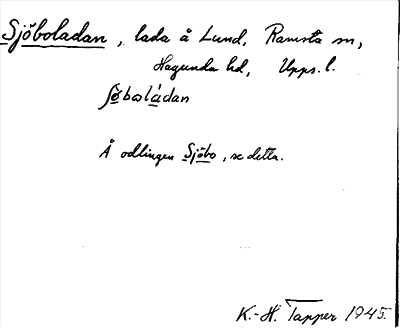 Sjöboladan, lada å Lund, Ramsta sn,
Hagunda hd, Upps. l.
ʃö̀boládan
Å odlingen Sjöbo, se detta.
K.-H. Tapper 1945.